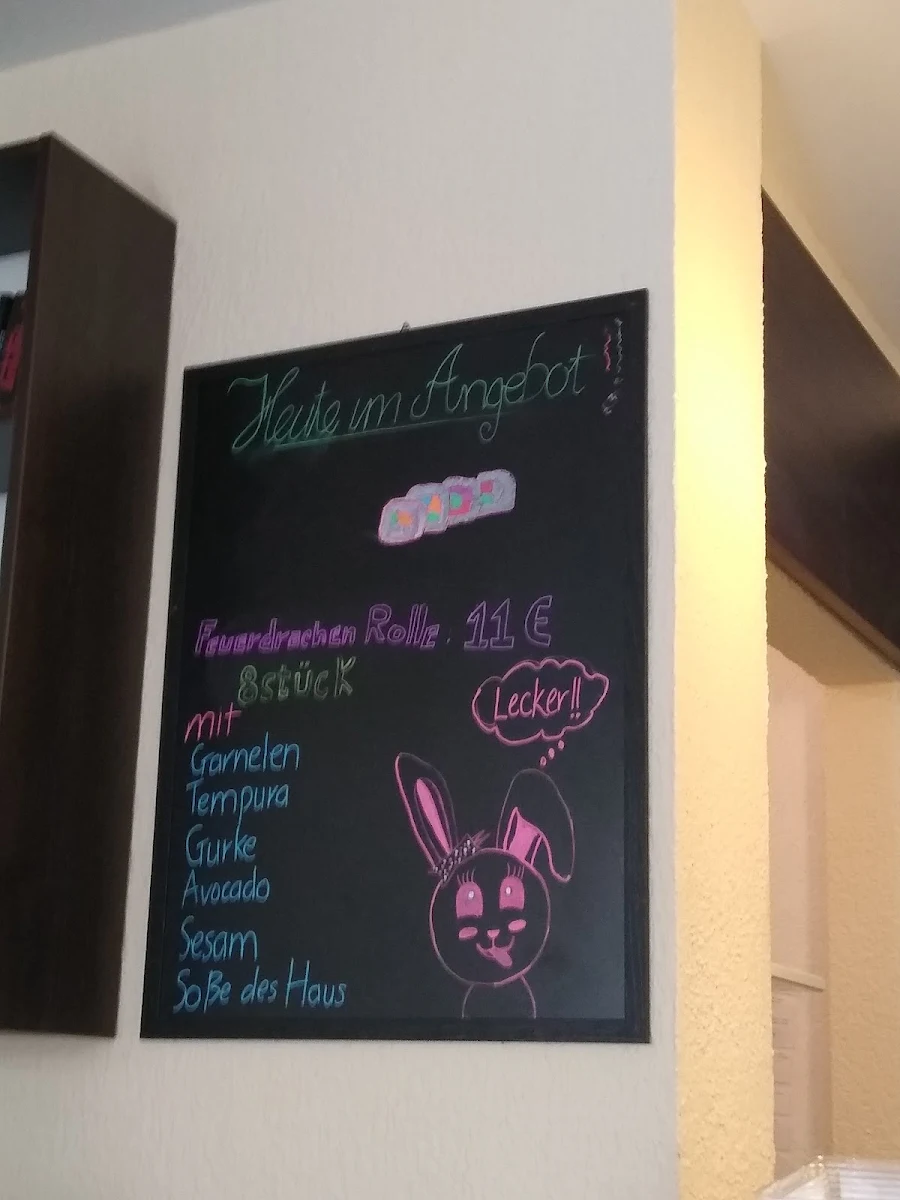 Heute im Angebot !!
Feuerdrachen Rolle. 11 €
8stück
mit
Garnelen
Tempura
Gurke
Avocado
Sesam
Soße des Haus
Lecker!!